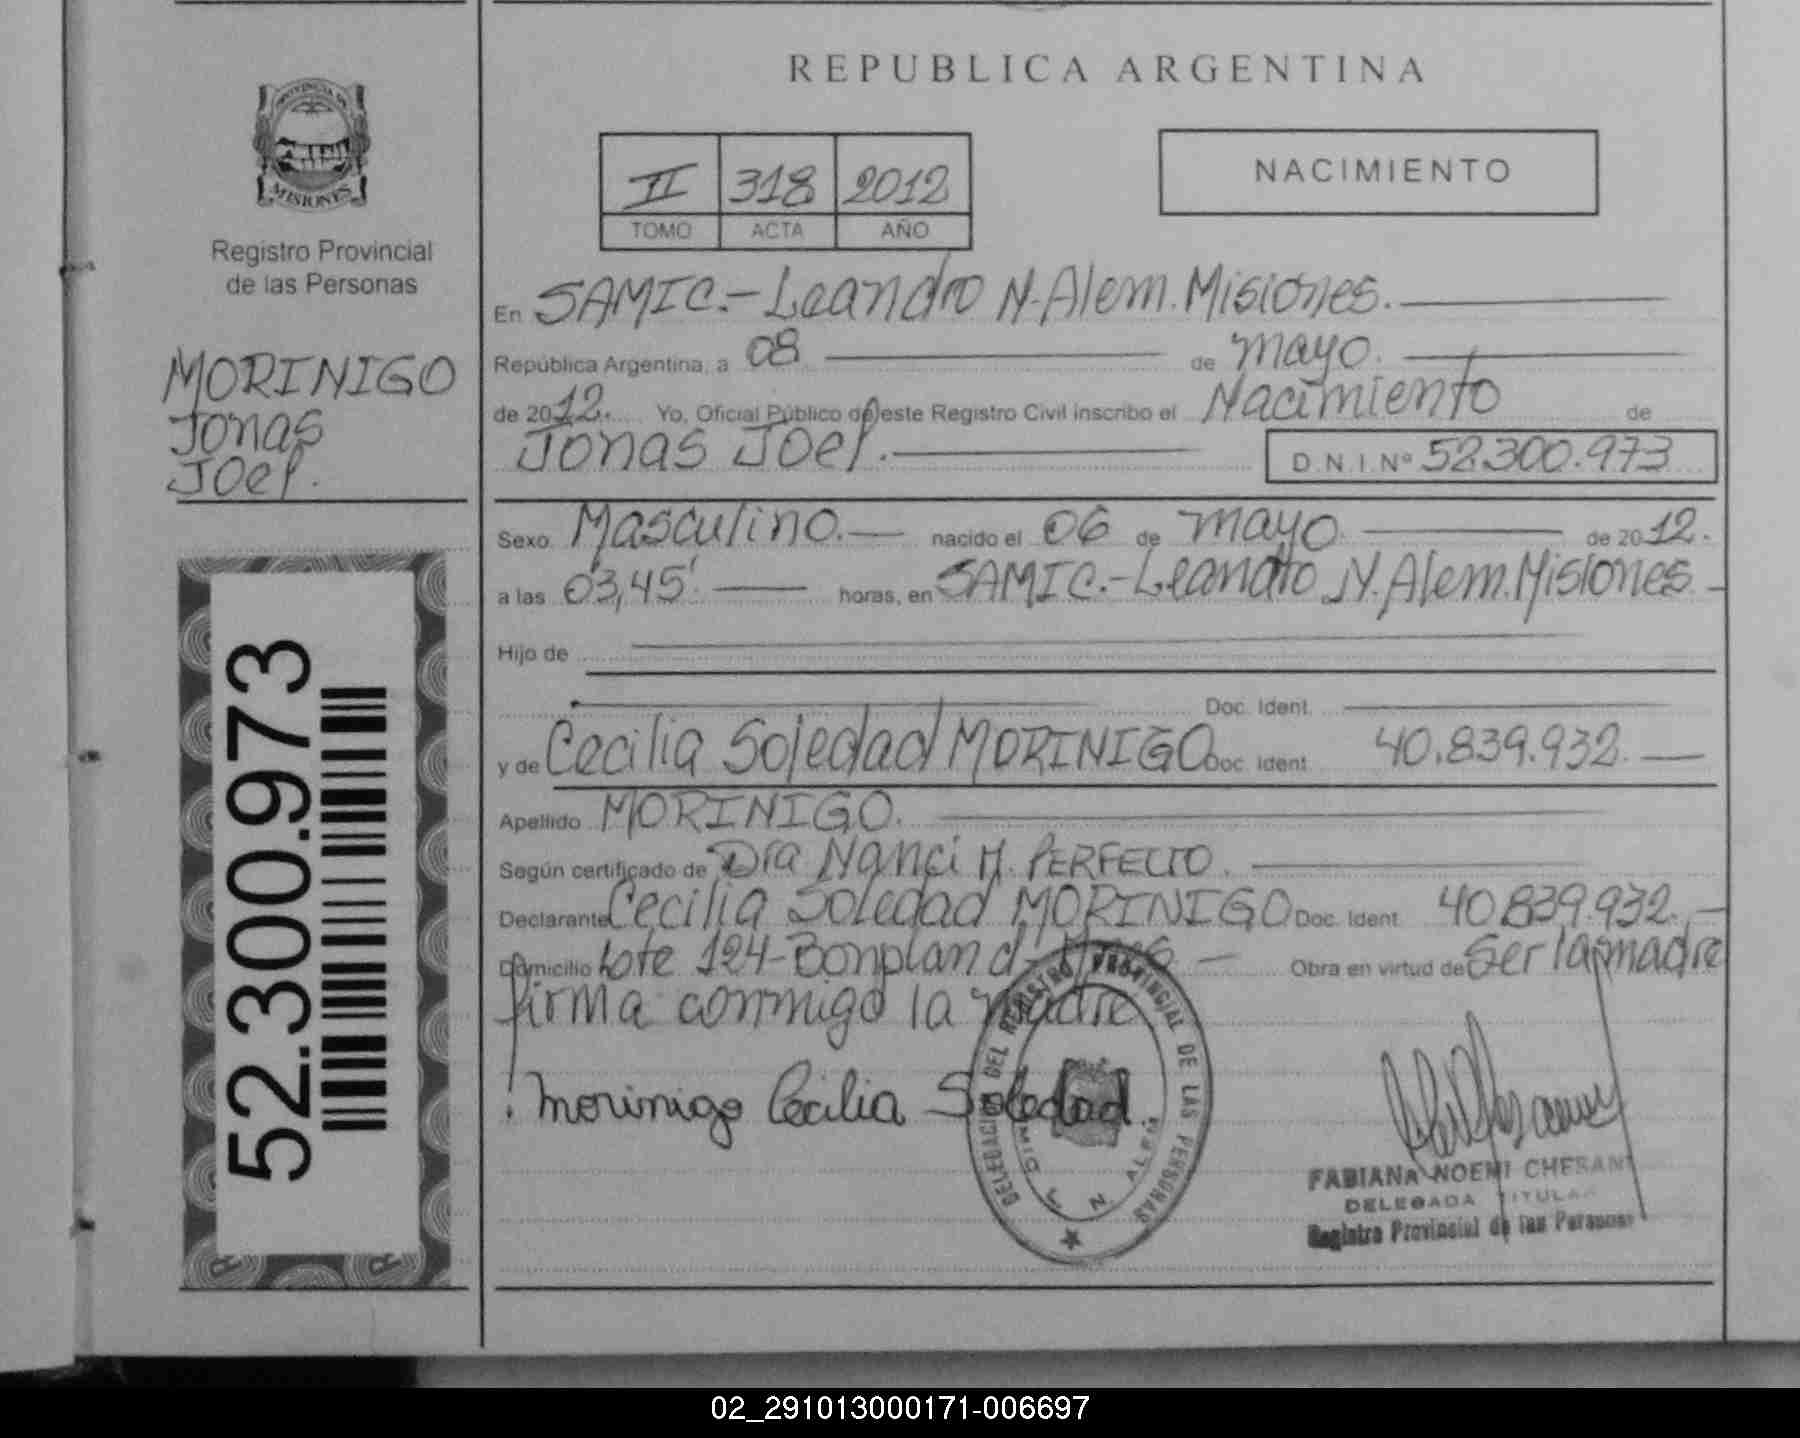 REPUBLICA ARGENTINA
PROVINCIA DE
MISIONES
Registro Provincial
de las Personas
MORINIGO
Jonas
Joel.
52.300.973
II 318 2012
TOMO ACTA AÑO
NACIMIENTO
En SAMIC.- Leandro N. Alem. Misiones.
República Argentina, a 08 de mayo.
de 2012. Yo, Oficial Público de este Registro Civil inscribo el Nacimiento de
Jonas Joel.
D.N.I. Nº 52.300.973
Sexo Masculino. nacido el 06 de mayo. de 2012.
a las 03,45'. horas, en SAMIC.- Leandro N. Alem. Misiones
Hijo de
Doc. Ident.
y de Cecilia Soledad MORINIGO Doc. Ident. 40.839.932.
Apellido MORINIGO.
Según certificado de Dra Nanci M. PERFECTO.
Declarante Cecilia Soledad MORINIGO Doc. Ident. 40.839.932.
Domicilio Lote 124-Bonpland- Mnes Obra en virtud de Ser la madre
firma conmigo la madre
morinigo Cecilia Soledad
DELEGACION DEL REGISTRO PROVINCIAL DE LAS PERSONAS
L. N. ALEM
FABIANA NOEMI
DELEGADA TITULAR
Registro Provincial de las Personas
02_291013000171-006697